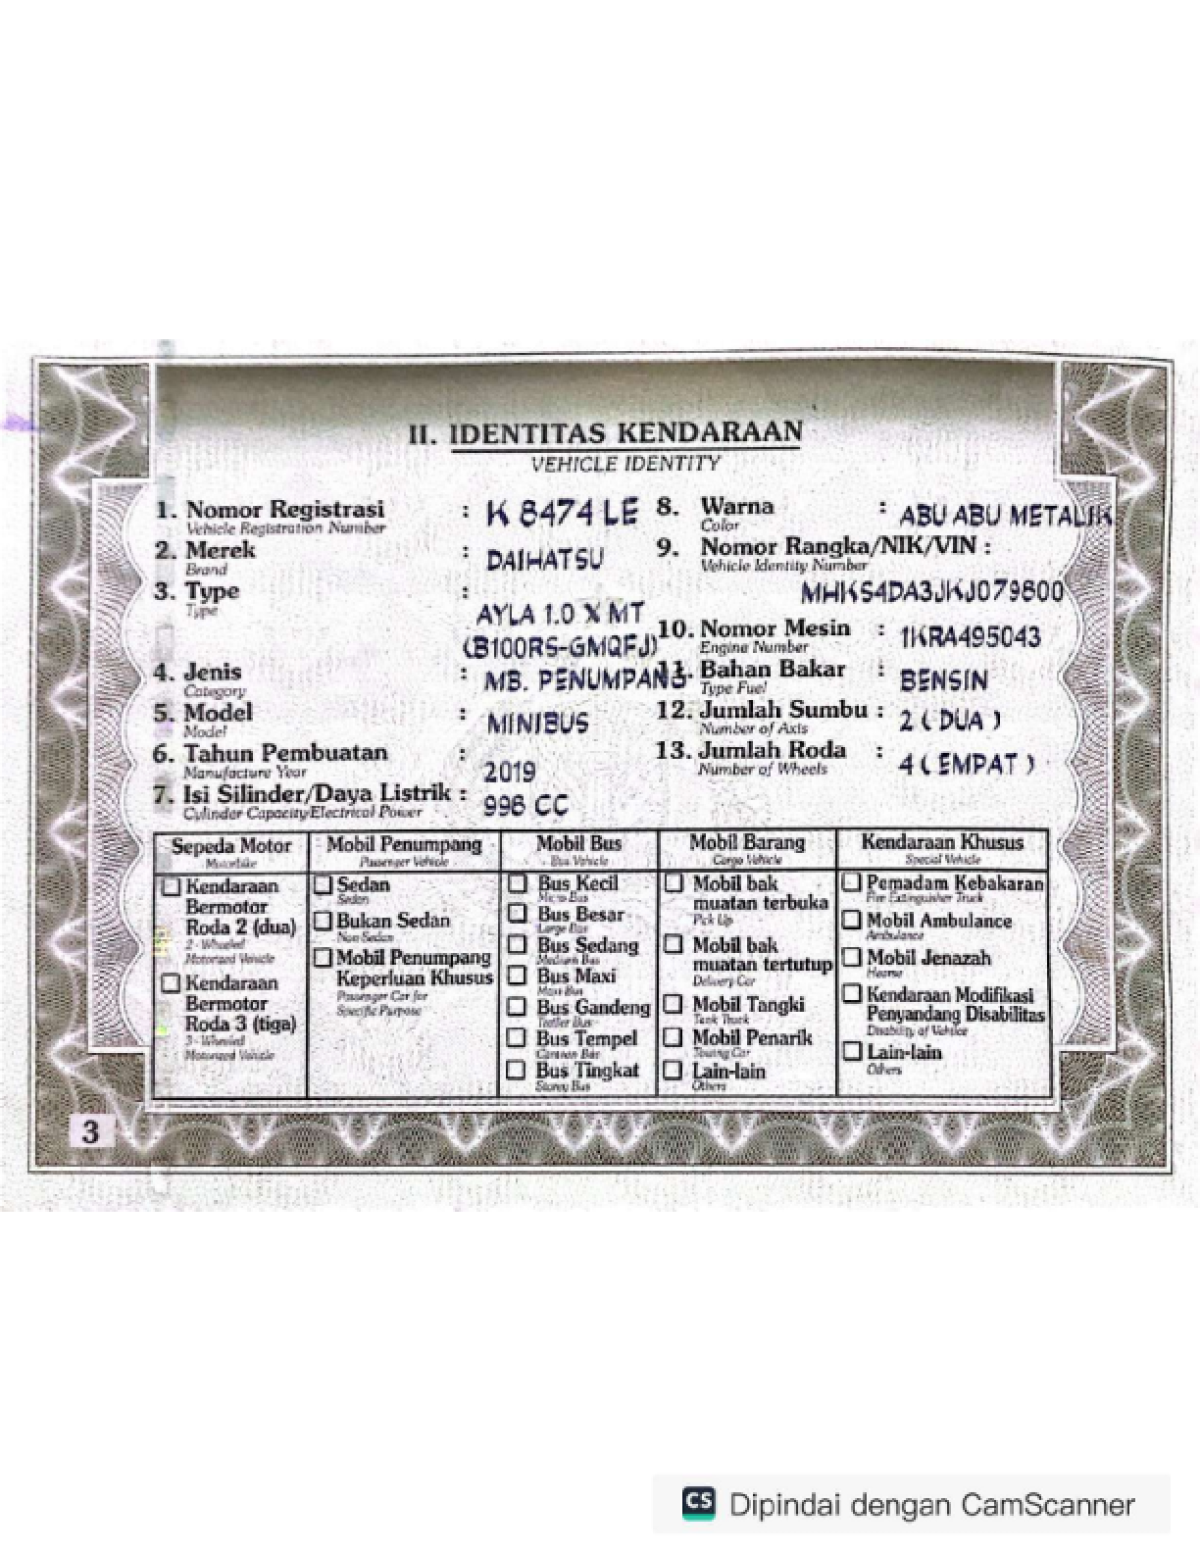 II. IDENTITAS KENDARAAN
VEHICLE IDENTITY
1. Nomor Registrasi : K 8474 LE
Vehicle Registration Number
2. Merek : DAIHATSU
Brand
3. Type :
Type
AYLA 1.0 X MT
(B100RS-GMQFJ)
4. Jenis : MB. PENUMPANG
Category
5. Model : MINIBUS
Model
6. Tahun Pembuatan : 2019
Manufacture Year
7. Isi Silinder/Daya Listrik : 998 CC
Cylinder Capacity/Electrical Power
8. Warna : ABU ABU METALIK
Color
9. Nomor Rangka/NIK/VIN :
Vehicle Identity Number
MHKS4DA3JKJ079800
10. Nomor Mesin : 1KRA495043
Engine Number
11. Bahan Bakar : BENSIN
Type Fuel
12. Jumlah Sumbu : 2 ( DUA )
Number of Axis
13. Jumlah Roda : 4 ( EMPAT )
Number of Wheels
Sepeda Motor
Motorbike
Kendaraan
Bermotor
Roda 2 (dua)
2 - Wheeled
Motorized Vehicle
Kendaraan
Bermotor
Roda 3 (tiga)
3 - Wheeled
Motorized Vehicle
Mobil Penumpang
Passenger Vehicle
Sedan
Sedan
Bukan Sedan
Non Sedan
Mobil Penumpang
Keperluan Khusus
Passenger Car for
Specific Purpose
Mobil Bus
Bus Vehicle
Bus Kecil
Micro Bus
Bus Besar
Large Bus
Bus Sedang
Medium Bus
Bus Maxi
Maxi Bus
Bus Gandeng
Trailer Bus
Bus Tempel
Caravan Bus
Bus Tingkat
Storey Bus
Mobil Barang
Cargo Vehicle
Mobil bak
muatan terbuka
Pick Up
Mobil bak
muatan tertutup
Delivery Car
Mobil Tangki
Tank Truck
Mobil Penarik
Towing Car
Lain-lain
Others
Kendaraan Khusus
Special Vehicle
Pemadam Kebakaran
Fire Extinguisher Truck
Mobil Ambulance
Ambulance
Mobil Jenazah
Hearse
Kendaraan Modifikasi
Penyandang Disabilitas
Disability of Vehicle
Lain-lain
Others
3
CS Dipindai dengan CamScanner